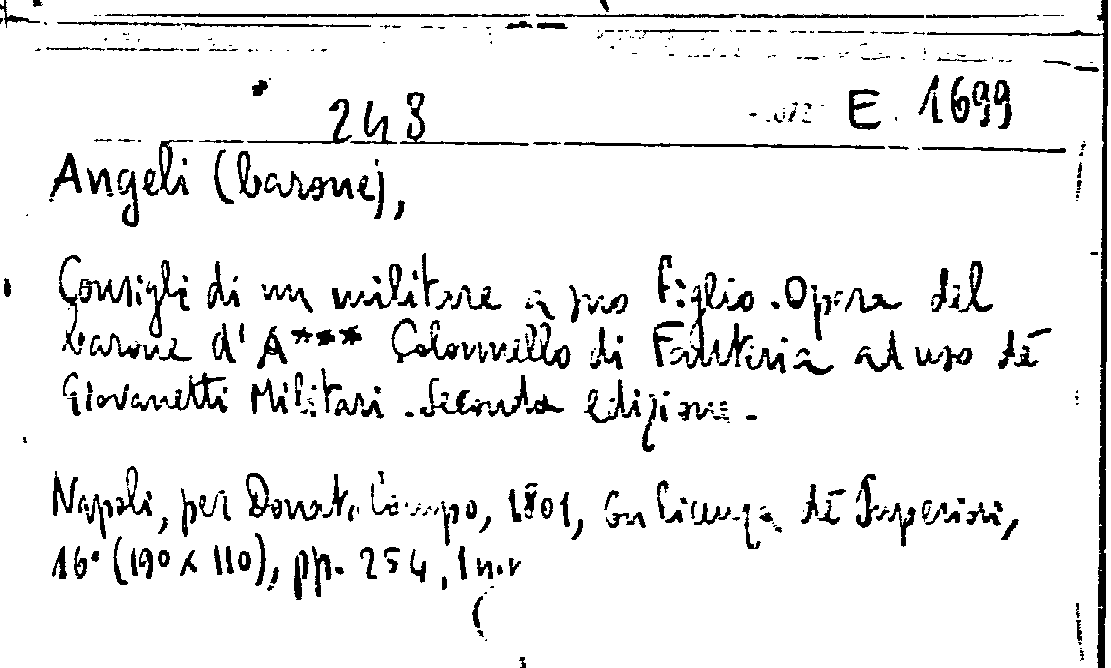 243 E. 1699
Angeli (barone),
Consigli di un militare a suo figlio. Opera del
barone d'A*** Colonnello di Fanteria ad uso de'
Giovanetti Militari. Seconda edizione.-
Napoli, per Donato Campo, 1801, con licenza de' Superiori,
16° (190 x 110), pp. 254, 1 n.n